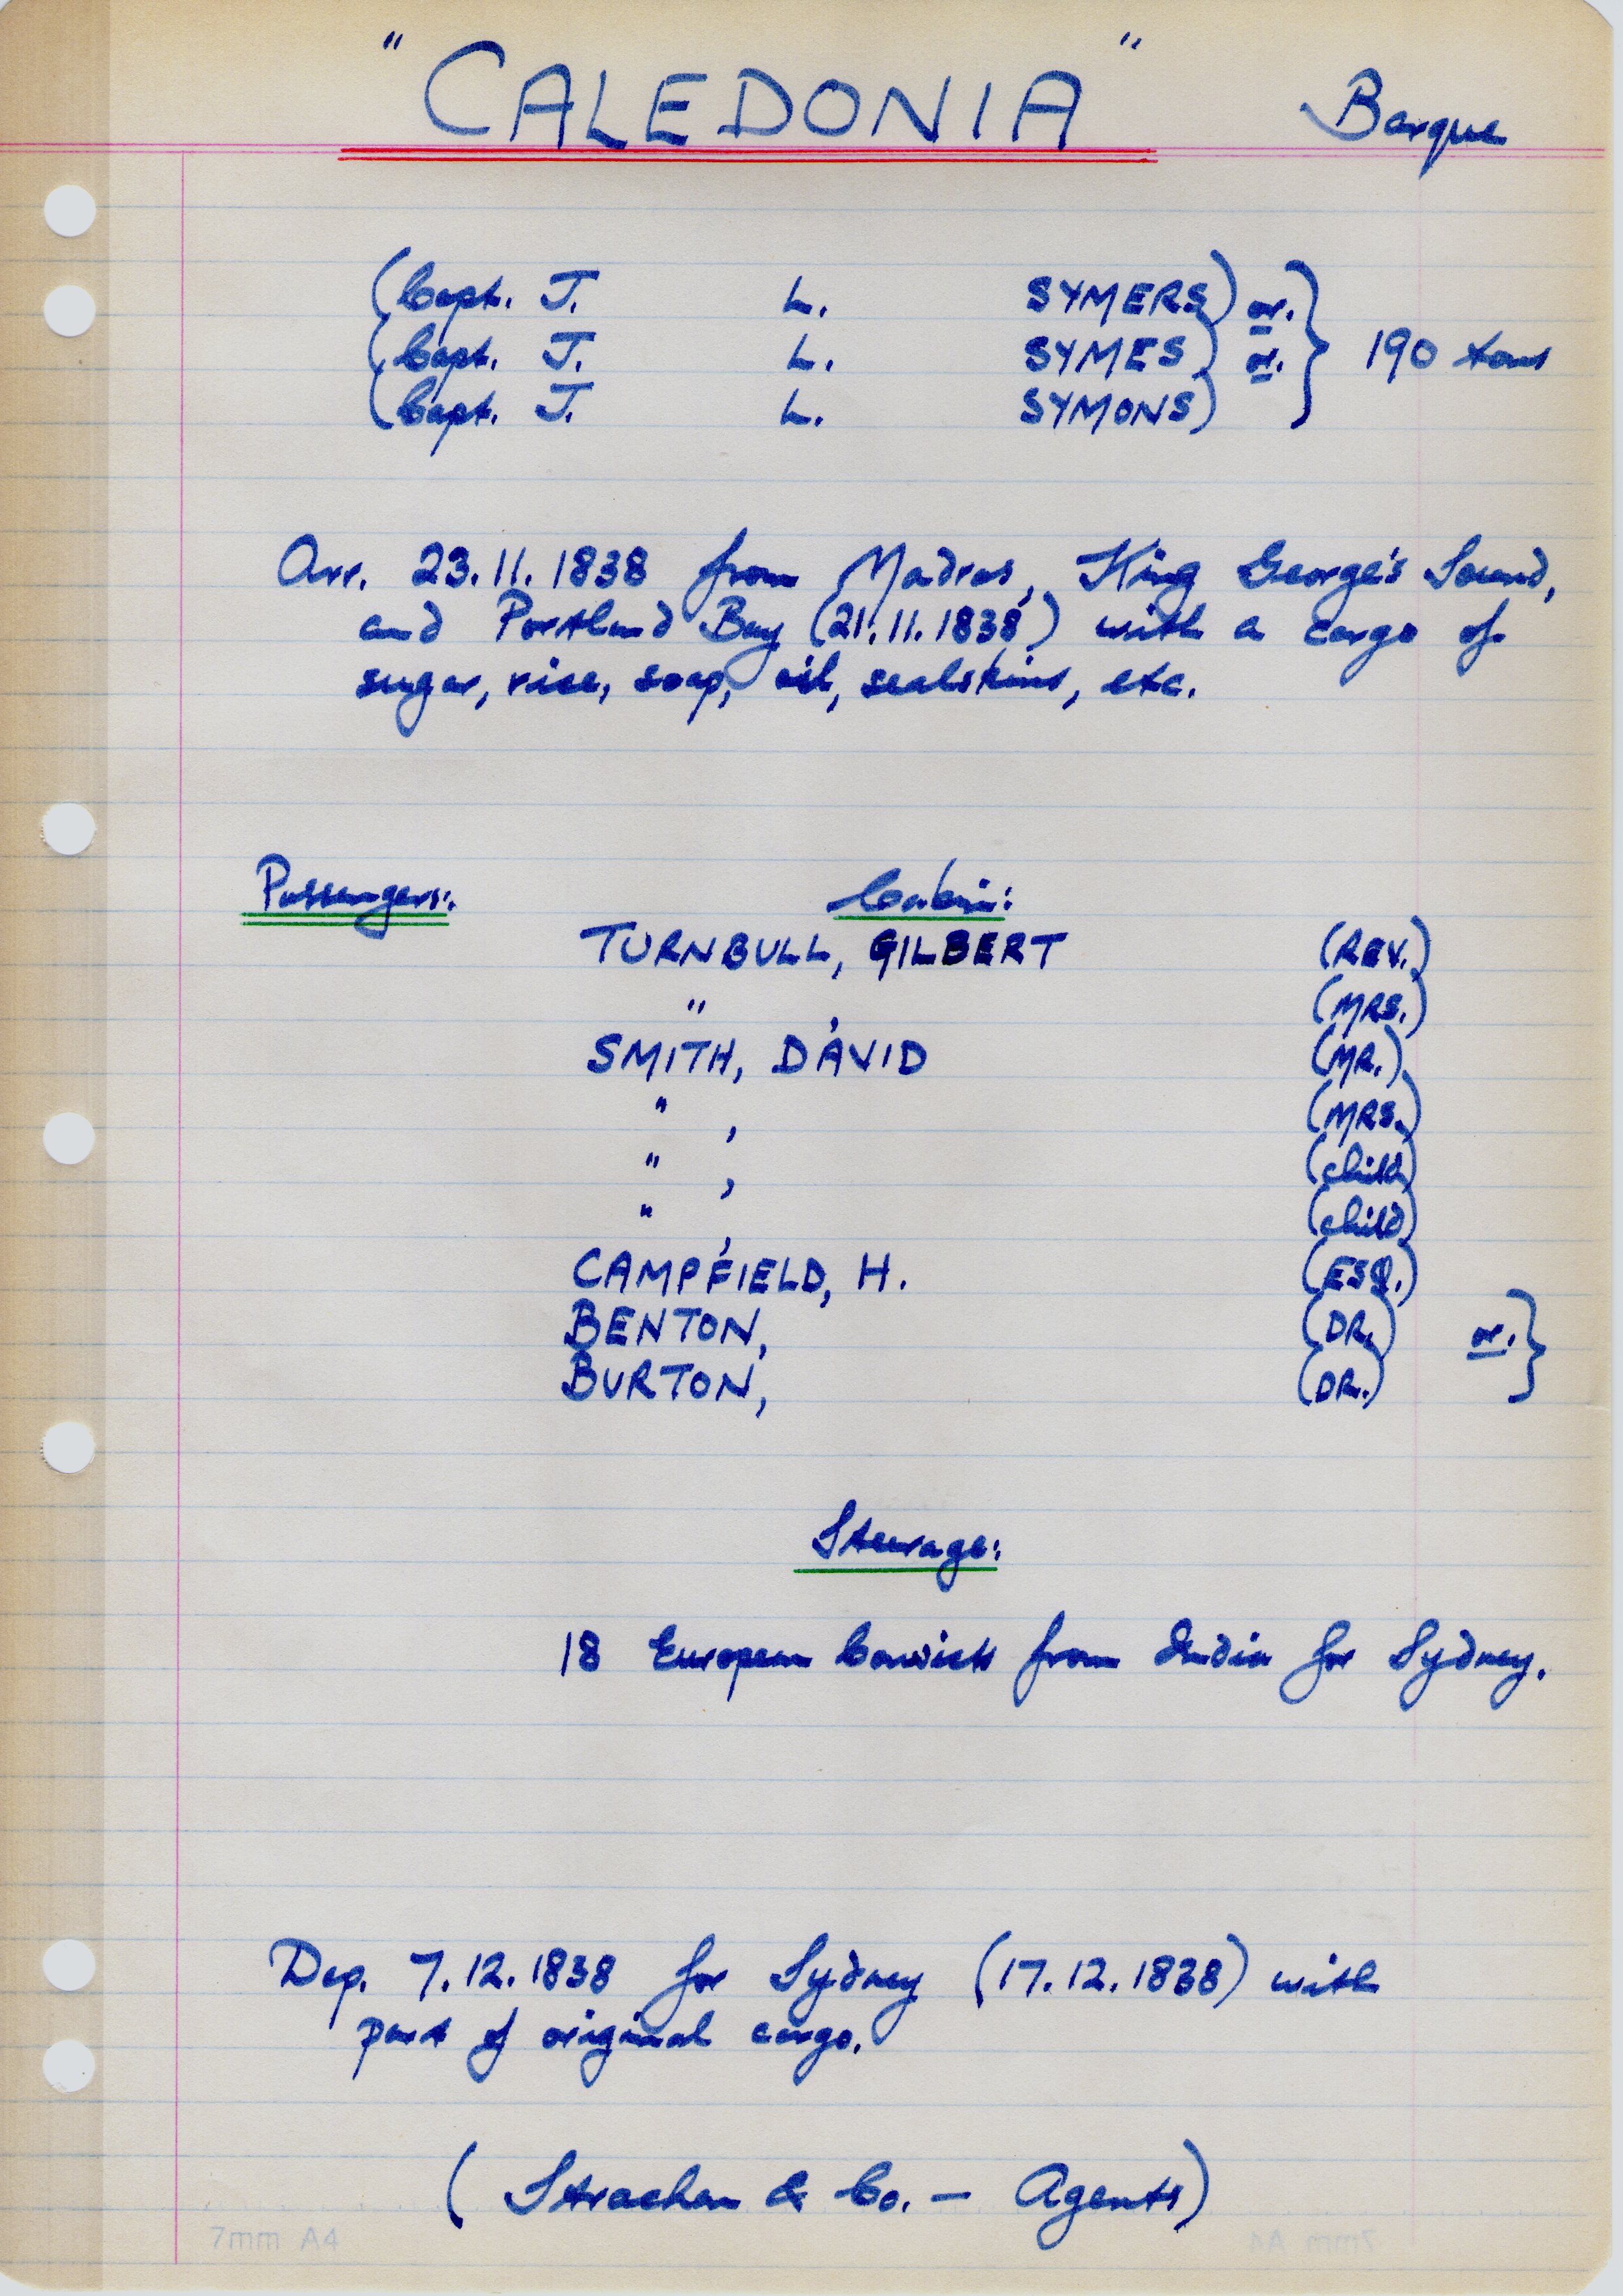 "CALEDONIA" Barque
(Capt. J. L. SYMERS) or.
(Capt. J. L. SYMES) or. } 190 tons
(Capt. J. L. SYMONS)
Arr. 23.11.1838 from Madras, King George's Sound,
and Portland Bay (21.11.1838) with a cargo of
sugar, rice, soap, oil, sealskins, etc.
Passengers: Cabin:
TURNBULL, GILBERT (REV.)
" , (MRS.)
SMITH, DAVID (MR.)
" , (MRS.)
" , (child)
" , (child)
CAMPFIELD, H. (ESQ.)
BENTON, (DR.) or. }
BURTON, (DR.)
Steerage:
18 European Convicts from India for Sydney.
Dep. 7.12.1838 for Sydney (17.12.1838) with
part of original cargo.
(Strachan & Co. — Agents)
7mm A4